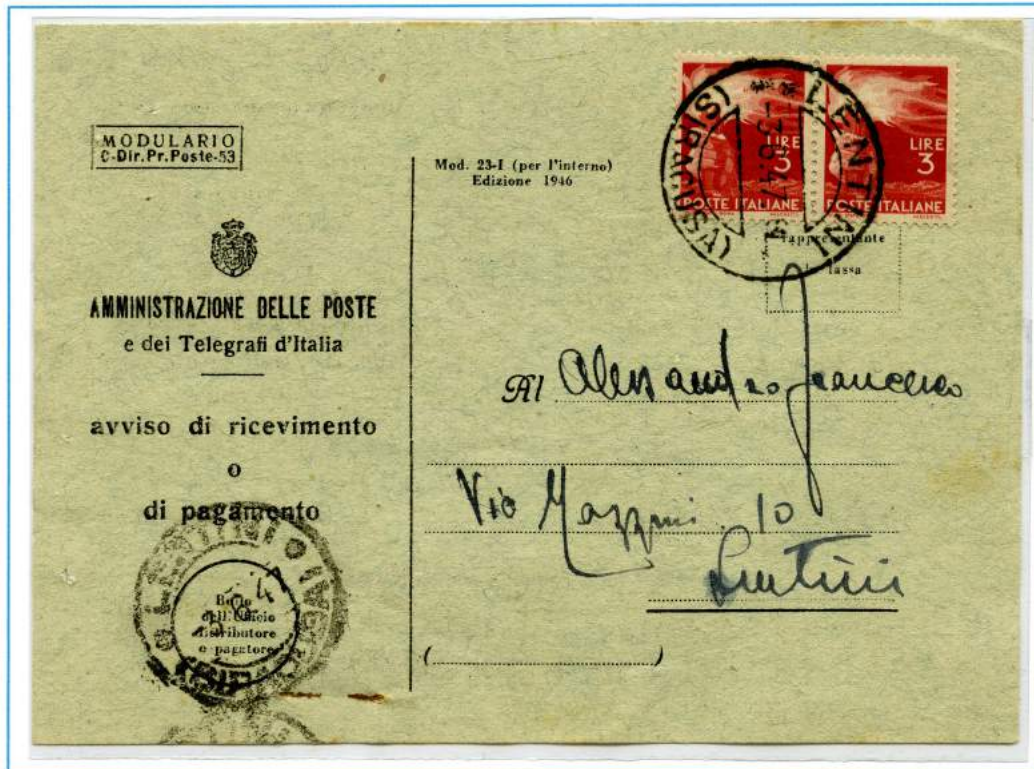 MODULARIO
C-Dir.Pr.Poste-53
AMMINISTRAZIONE DELLE POSTE
e dei Telegrafi d'Italia
avviso di ricevimento
o
di pagamento
Bollo
dell'Ufficio
distributore
e pagatore
Mod. 23-I (per l'interno)
Edizione 1946
LENTINI
(SIRACUSA)
-3.6.47
LIRE
3
POSTE ITALIANE
LIRE
3
POSTE ITALIANE
rappresentante
tassa
Al Alessandro Francesco
Via Mazzini 10
Lentini
( )